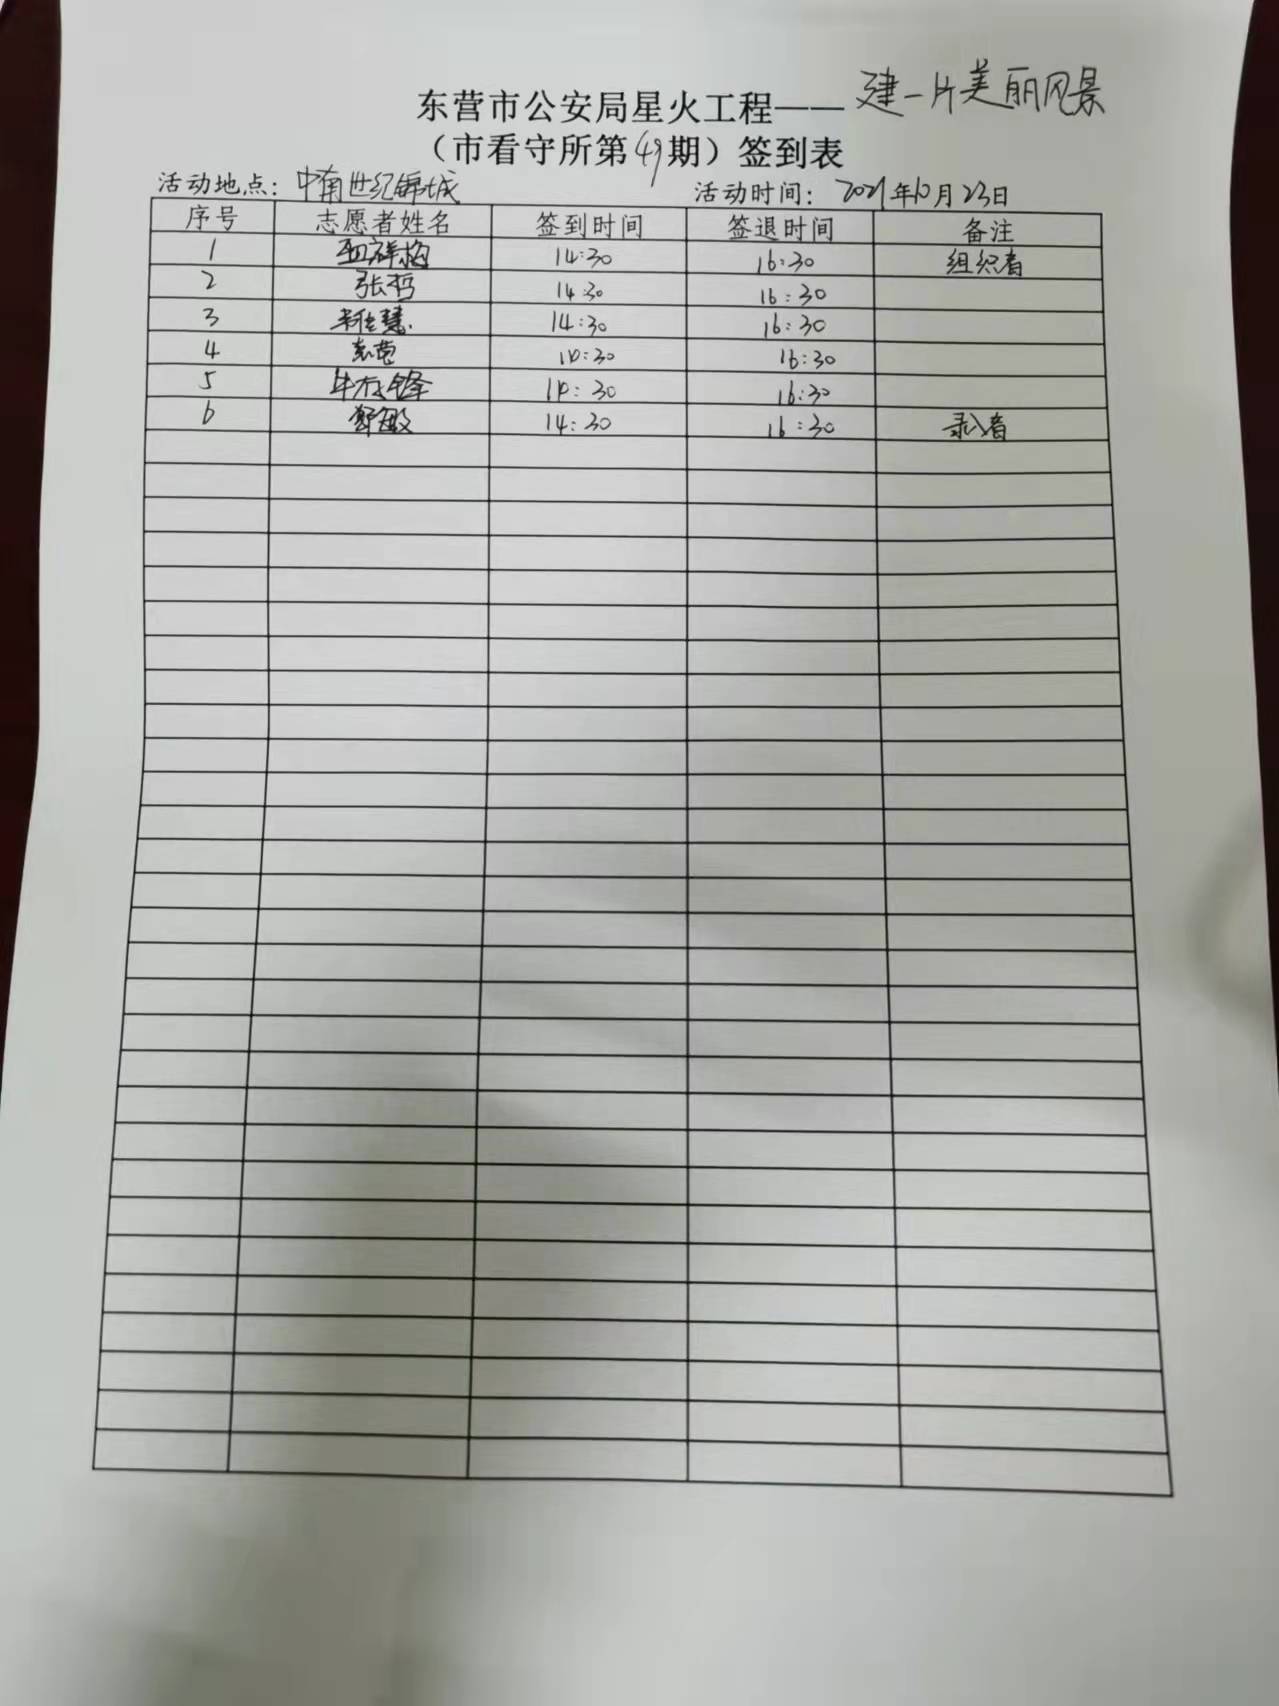 东营市公安局星火工程——建一片美丽风景
（市看守所第49期）签到表
活动地点：中南世纪锦城 活动时间：2021年10月23日
序号 志愿者姓名 签到时间 签退时间 备注
1 14:30 16:30 组织者
2 张哲 14:30 16:30
3 14:30 16:30
4 14:30 16:30
5 14:30 16:30
6 14:30 16:30 录入者